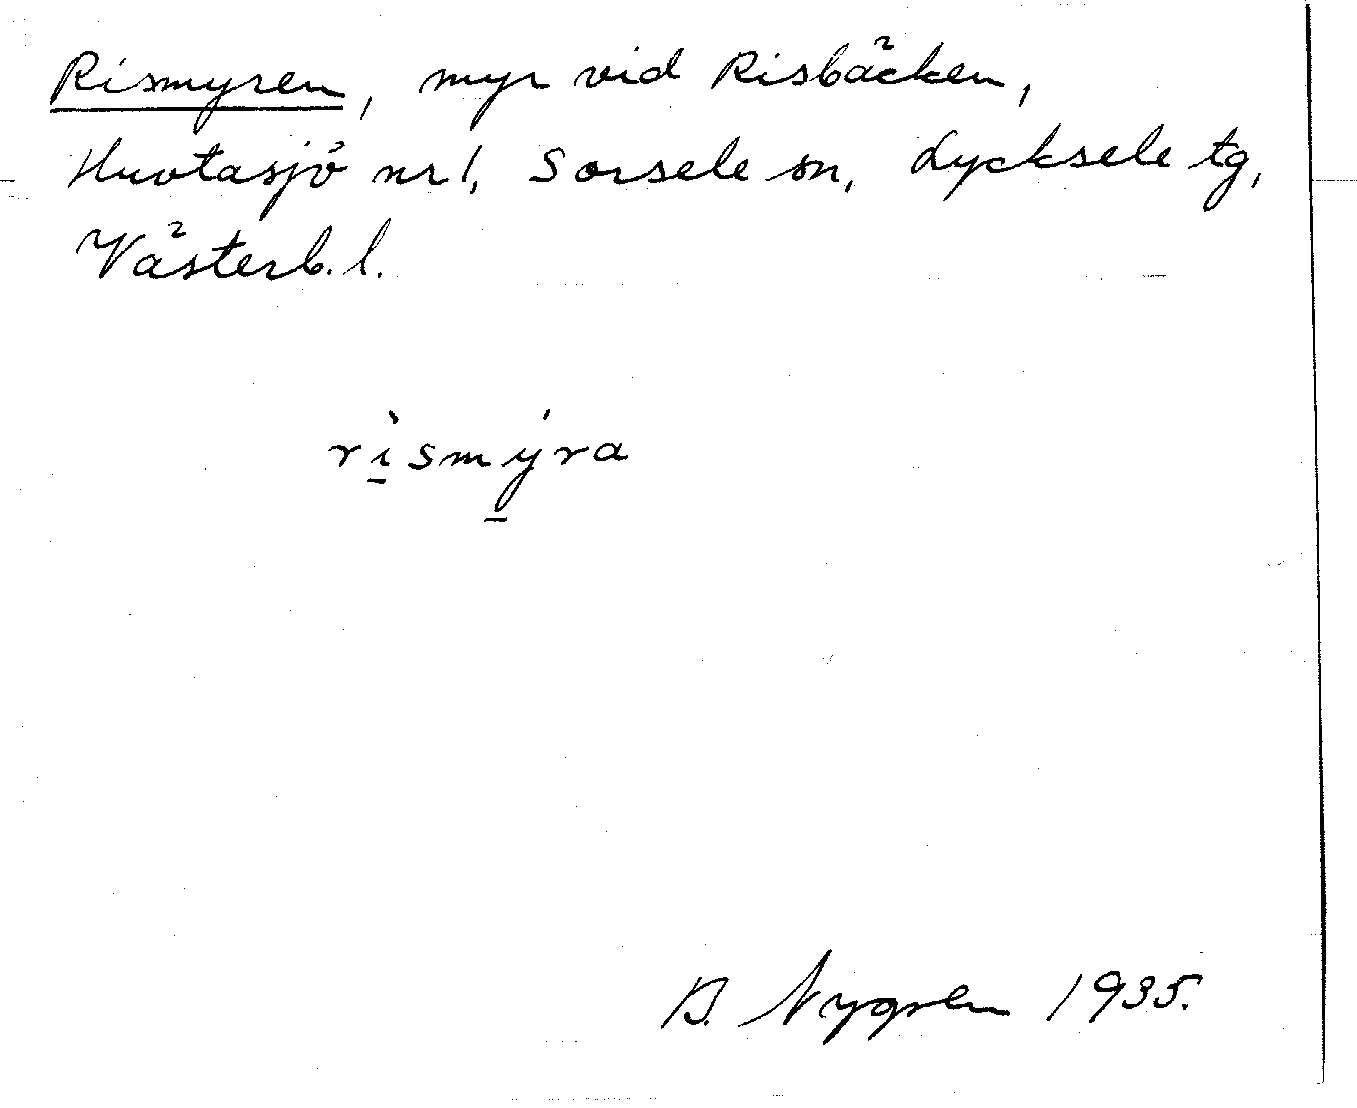 Rismyren, myr vid Risbäcken,
Huotasjö nr 1, Sorsele sn, Lycksele tg,
Västerb. l.
rı̱̀smý̱ra
B. Nygren 1935.